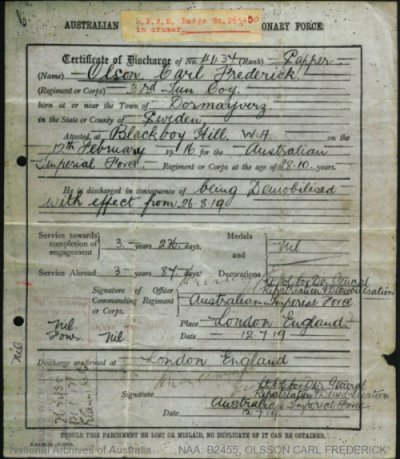 AUSTRALIAN IONARY FORCE.
R.F.A.S. Badge No.
in drawer
Certificate of Discharge of No. 4434 (Rank) Sapper
(Name) Olson Carl Frederick.
(Regiment or Corps) 3rd Tun Coy.
born at or near the Town of Dormayverz
in the State or County of Sweden,
Attested at Blackboy Hill. W.A. on the
12th February 1916 for the Australian
Imperial Force Regiment or Corps at the age of 28.10. years.
He is discharged in consequence of being Demobilised
with effect from 26.8.19
Service towards completion of engagement 3 years 236 days.
Medals and Decorations Nil
Service Abroad 3 years 87 days.
Repatriation & Demobilisation
Signature of Officer Commanding Regiment or Corps. Australian Imperial Force
Place London England.
Nil Nil
Date 12.7.19
Nil
Discharge confirmed at London England
Signature
Repatriation & Demobilisation
Australian Imperial Force
Date 12.7.19
SHOULD THIS PARCHMENT BE LOST OR MISLAID, NO DUPLICATE OF IT CAN BE OBTAINED.
National Archives of Australia NAA: B2455, OLSSON CARL FREDERICK